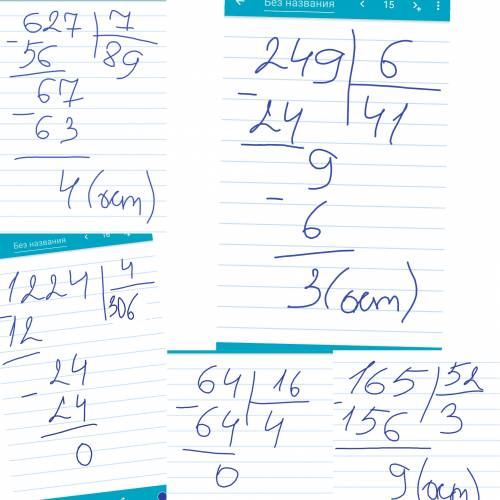 627 | 7
- 56 | 89
67
- 63
4 (ост)
Без названия < 15
249 | 6
- 24 | 41
9
- 6
3 (ост)
Без названия < 16
1224 | 4
- 12 | 306
24
- 24
0
64 | 16
- 64 | 4
0
165 | 52
- 156 | 3
9 (ост)